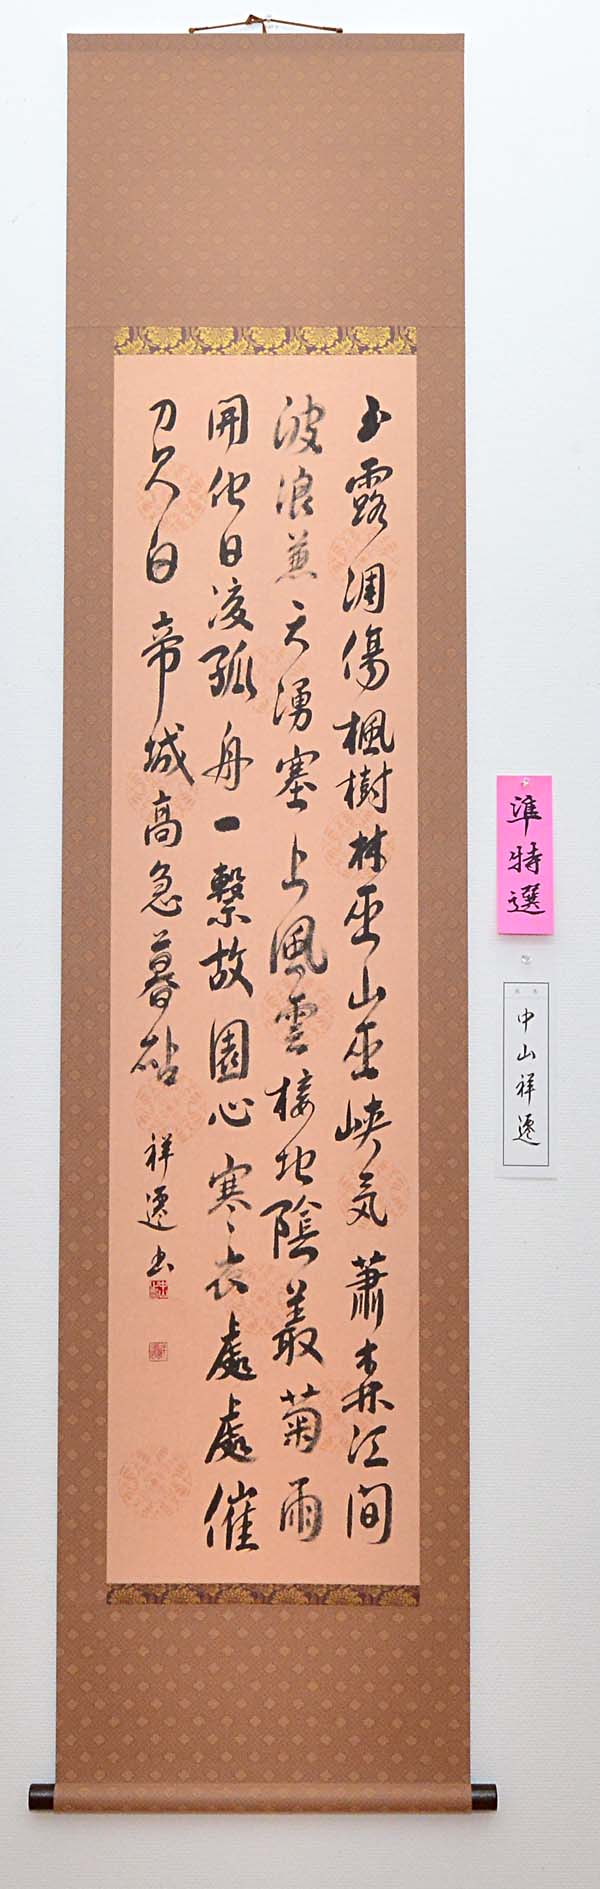 玉露凋傷楓樹林巫山巫峡気蕭森江間
波浪兼天湧塞上風雲接地陰叢菊両
開他日涙孤舟一繋故園心寒衣處處催
刀尺白帝城高急暮砧 祥遷書
準特選
中山祥遷